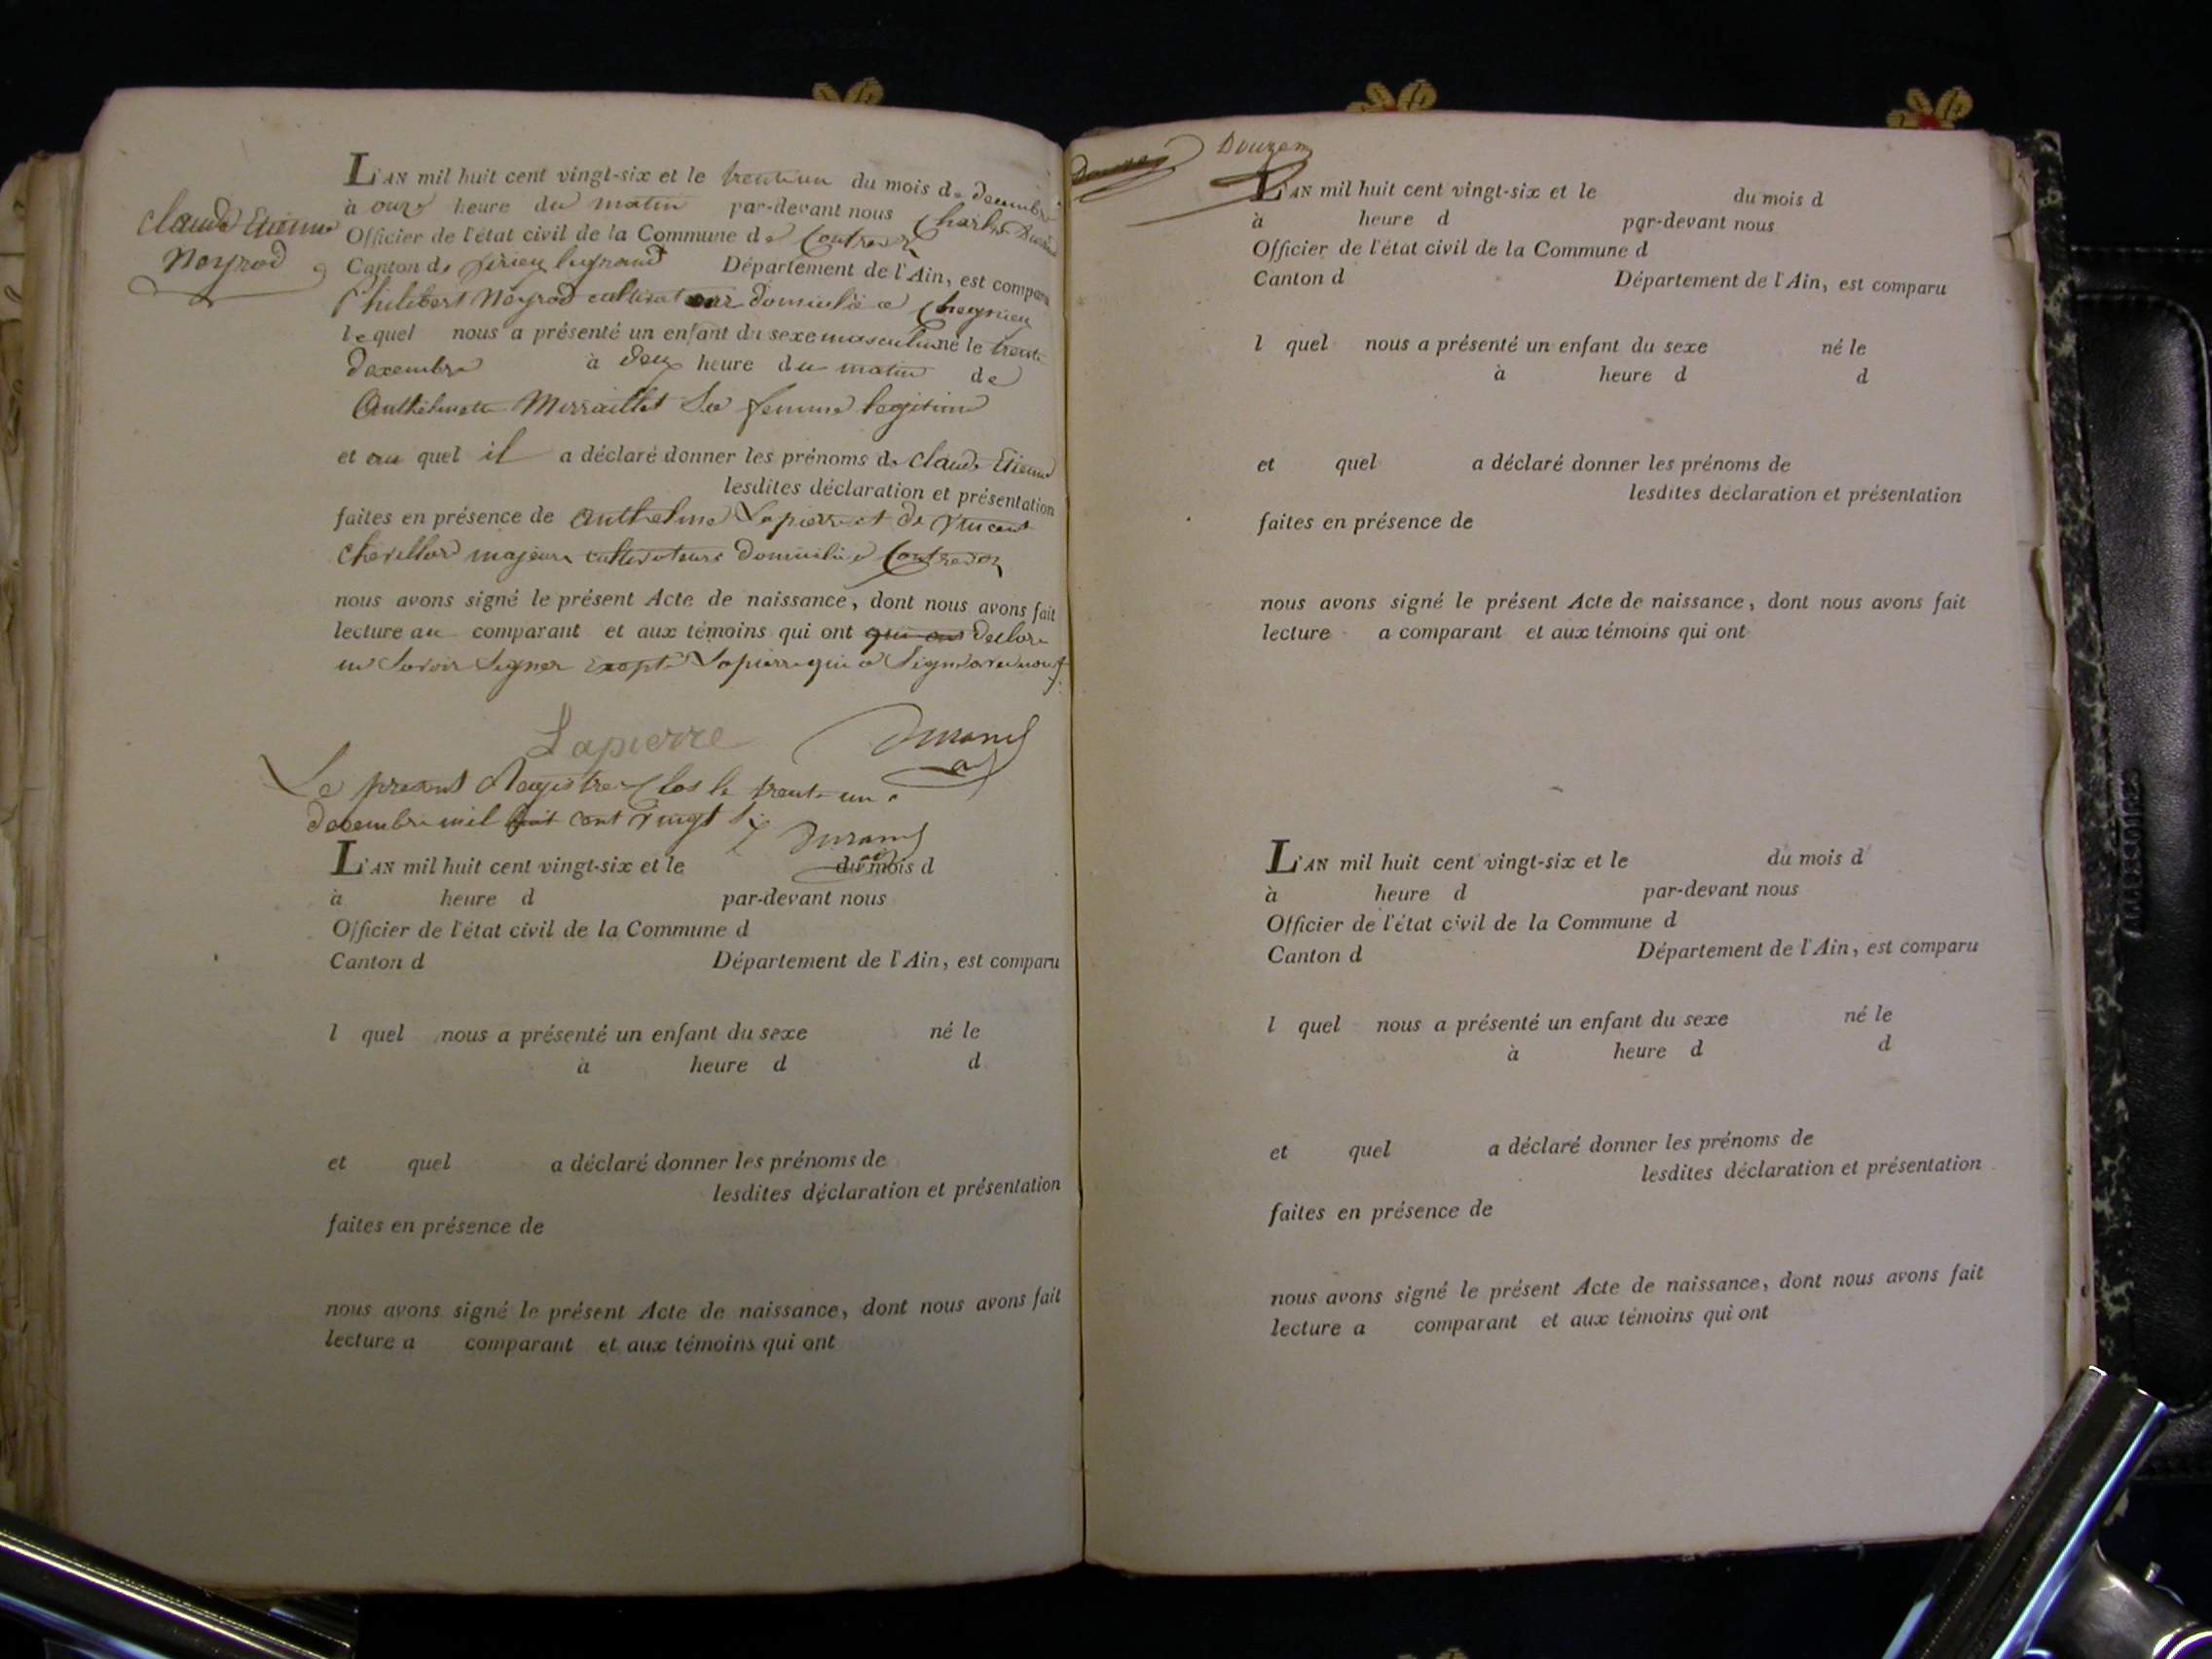 Claude Etienne
Neyrod
L'AN mil huit cent vingt-six et le trentun du mois de decembre
à onze heure du matin par-devant nous Charles Durand
Officier de l'état civil de la Commune de Contrevoz
Canton de Virieu legrand Département de l'Ain, est comparu
Philibert Neyrod cultivateur domicilié a Cheynieu
lequel nous a présenté un enfant du sexe masculin né le trente
decembre à deux heure du matin de
Anthelmette Merraillet Sa femme legitime
et au quel il a déclaré donner les prénoms de Claude Etienne
lesdites déclaration et présentation
faites en présence de Anthelme Lapierre et de Vincent
Chevillard majeurs cultivateurs domicilié Contrevoz
nous avons signé le présent Acte de naissance, dont nous avons fait
lecture au comparant et aux témoins qui ont qui ont declare
ne Savoir Signer Exapté Lapierre qui a Signé avec nous
Lapierre Durand
Le present Registre Clos le trente un
decembre mil huit cent vingt Six Durand
L'AN mil huit cent vingt-six et le du mois d
à heure d par-devant nous
Officier de l'état civil de la Commune d
Canton d Département de l'Ain, est comparu
l quel nous a présenté un enfant du sexe né le
à heure d d
et quel a déclaré donner les prénoms de
lesdites déclaration et présentation
faites en présence de
nous avons signé le présent Acte de naissance, dont nous avons fait
lecture a comparant et aux témoins qui ont
Douzem
L'AN mil huit cent vingt-six et le du mois d
à heure d par-devant nous
Officier de l'état civil de la Commune d
Canton d Département de l'Ain, est comparu
l quel nous a présenté un enfant du sexe né le
à heure d d
et quel a déclaré donner les prénoms de
lesdites déclaration et présentation
faites en présence de
nous avons signé le présent Acte de naissance, dont nous avons fait
lecture a comparant et aux témoins qui ont
L'AN mil huit cent vingt-six et le du mois d
à heure d par-devant nous
Officier de l'état civil de la Commune d
Canton d Département de l'Ain, est comparu
l quel nous a présenté un enfant du sexe né le
à heure d d
et quel a déclaré donner les prénoms de
lesdites déclaration et présentation
faites en présence de
nous avons signé le présent Acte de naissance, dont nous avons fait
lecture a comparant et aux témoins qui ont